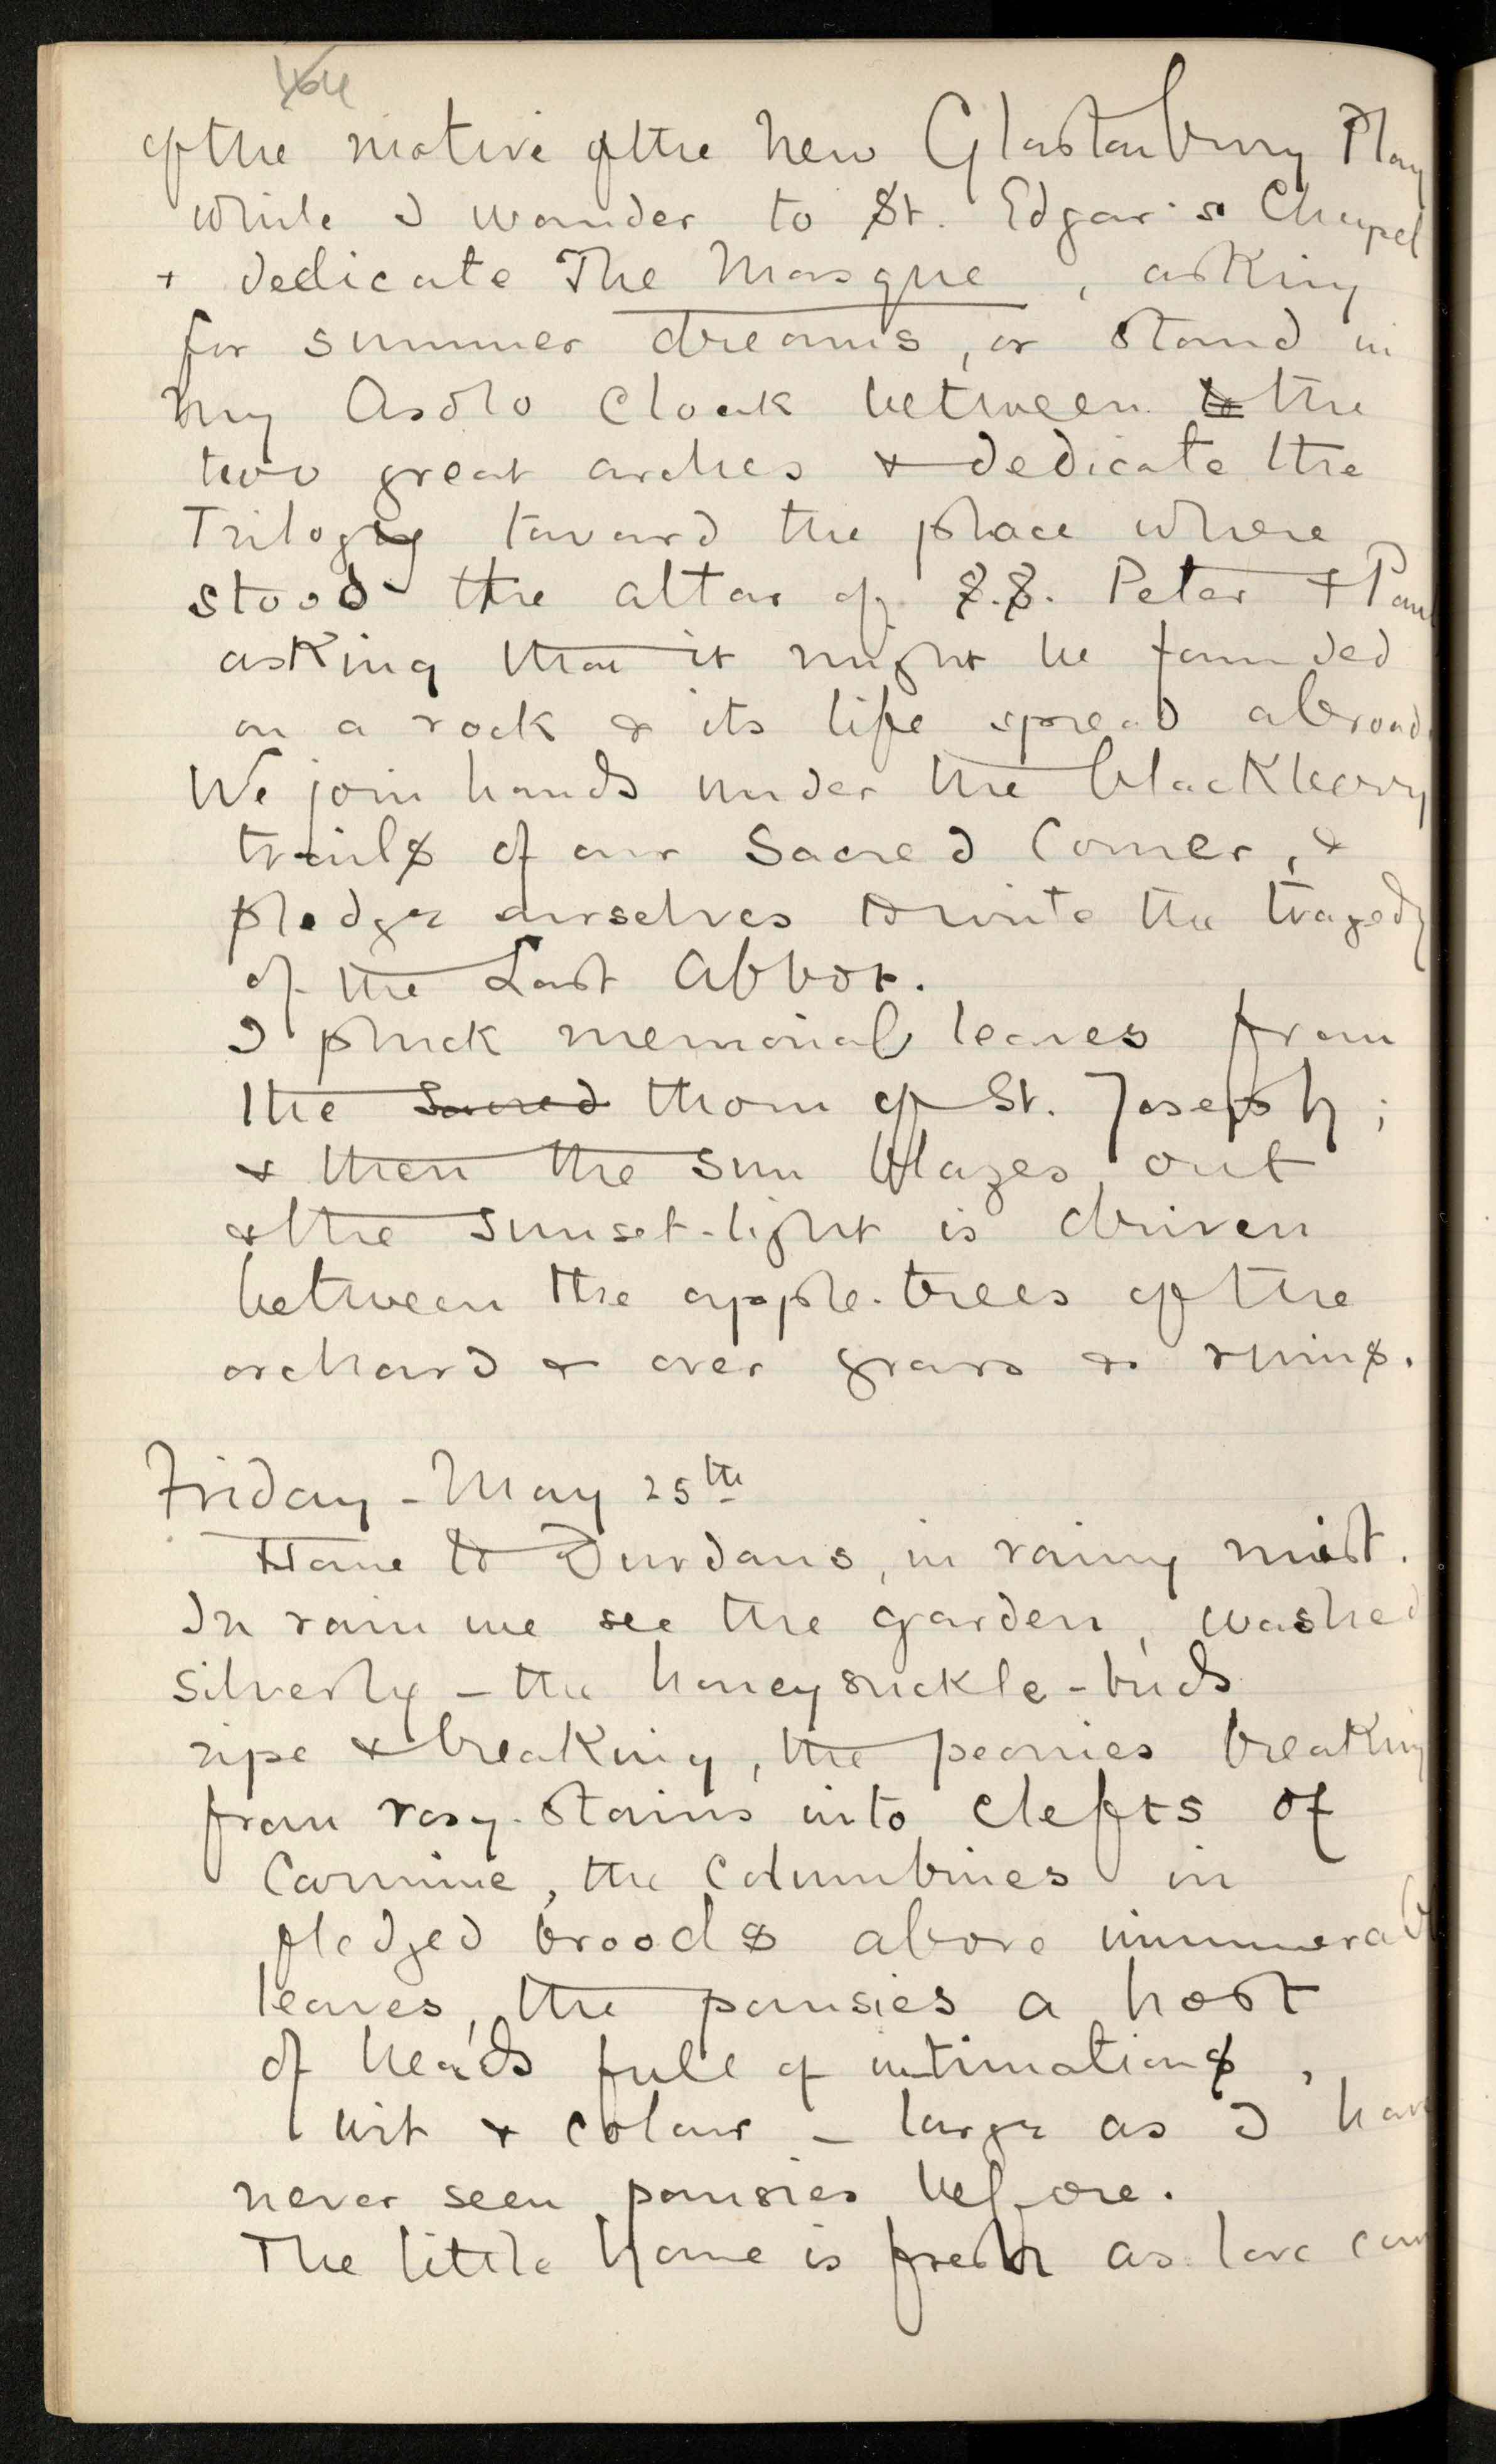 164
of the motive of the new Glastonbury Play
while I wander to St. Edgar's Chapel
+ dedicate The Masque, asking
for summer dreams, or stand in
my Asolo cloak between to the
two great arches & dedicate the
Trilogy toward the place where
stood the altar of S.S. Peter + Paul
asking that it might be founded
on a rock & its life spread abroad.
We join hands under the blackberry
trails of our Sacred Corner, &
pledge ourselves to write the tragedy
of the Last Abbot.
I pluck memorial leaves from
the Sacred thorn of St. Joseph;
& then the sun blazes out
& the sunset-light is driven
between the apple-trees of the
orchard & over grass & ruins.
Friday - May 25th
Home to Durdans, in rainy mist.
In rain we see the garden, washed
silverly - the honeysuckle-buds
ripe & breaking, the peonies breaking
from rosy-stains into clefts of
Carmine, the Columbines in
fledged broods above innumerab
leaves, the pansies a host
of heads full of intimations,
wit & colour - large as I have
never seen pansies before.
The little home is fresh as love can